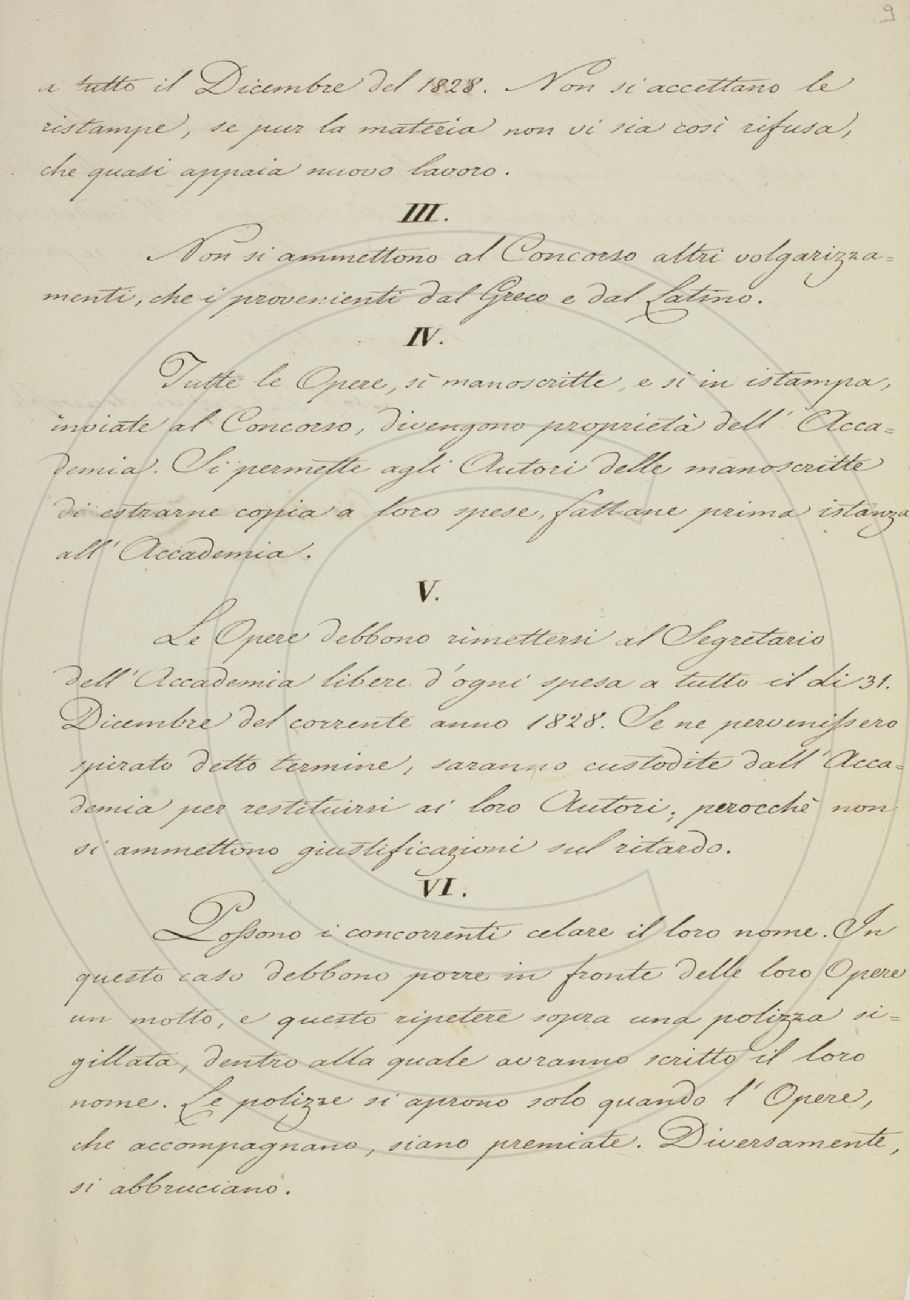 a tutto il Dicembre del 1828. Non si accettano le
ristampe, se pur la materia non vi sia così rifusa,
che quasi appaia nuovo lavoro.
III.
Non si ammettono al Concorso altri volgarizza=
menti, che i provenienti dal Greco e dal Latino.
IV.
Tutte le Opere, sì manoscritte, e sì in istampa,
inviate al Concorso, divengono proprietà dell' Acca=
demia. Si permette agli Autori delle manoscritte
di estrarne copia a loro spese, fattane prima istanza
all' Accademia.
V.
Le Opere debbono rimettersi al Segretario
dell' Accademia libere d'ogni spesa a tutto il di 31.
Dicembre del corrente anno 1828. Se ne pervenissero
spirato detto termine, saranno custodite dall' Acca=
demia per restituirsi ai loro Autori; perocchè non
si ammettono giustificazioni sul ritardo.
VI.
Possono i concorrenti celare il loro nome. In
questo caso debbono porre in fronte delle loro Opere
un motto, e questo ripetere sopra una polizza si=
gillata, dentro alla quale avranno scritto il loro
nome. Le polizze si aprono solo quando l' Opere,
che accompagnano, siano premiate. Diversamente,
si abbruciano.